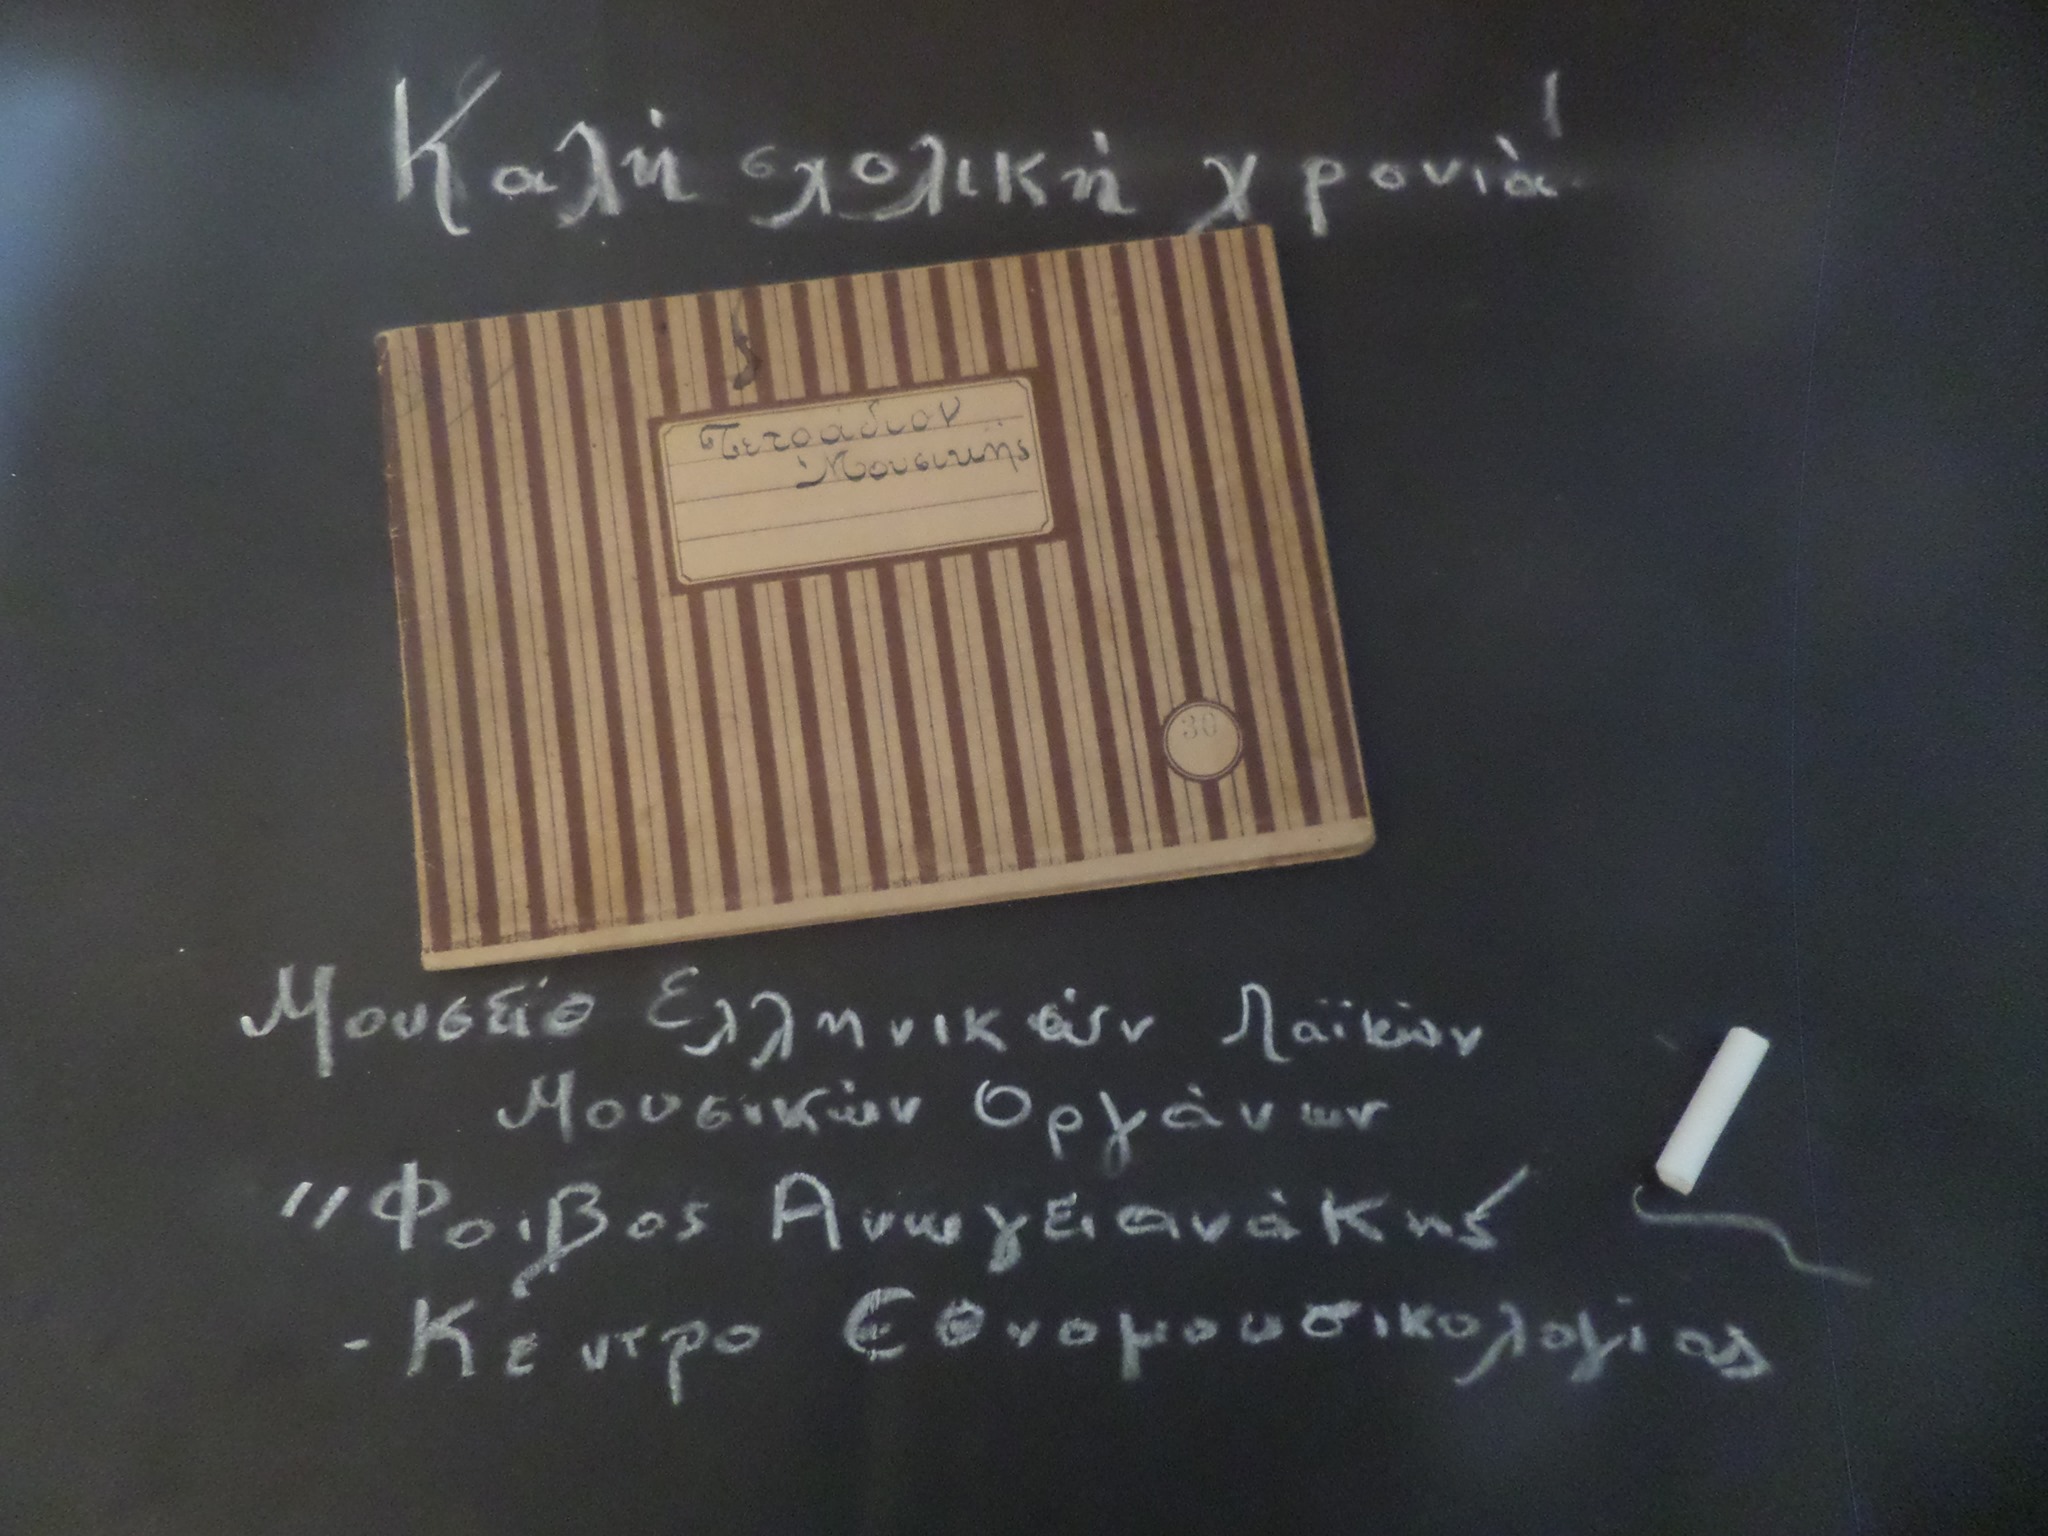 Καλή σχολική χρονιά!
Τετράδιον
Μουσικῆς
30
Μουσείο Ελληνικών Λαϊκών
Μουσικών Οργάνων
"Φοίβος Ανωγειανάκης
-Κέντρο Εθνομουσικολογίας